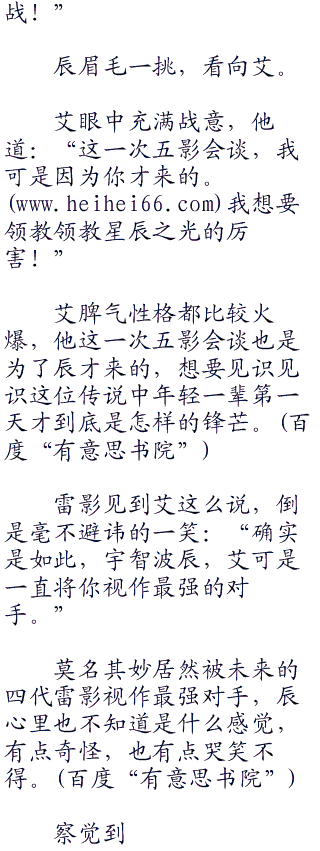 战！”
辰眉毛一挑，看向艾。
艾眼中充满战意，他
道：“这一次五影会谈，我
可是因为你才来的。
(www.heihei66.com)我想要
领教领教星辰之光的厉
害！”
艾脾气性格都比较火
爆，他这一次五影会谈也是
为了辰才来的，想要见识见
识这位传说中年轻一辈第一
天才到底是怎样的锋芒。(百
度“有意思书院”)
雷影见到艾这么说，倒
是毫不避讳的一笑：“确实
是如此，宇智波辰，艾可是
一直将你视作最强的对
手。”
莫名其妙居然被未来的
四代雷影视作最强对手，辰
心里也不知道是什么感觉，
有点奇怪，也有点哭笑不
得。(百度“有意思书院”)
察觉到